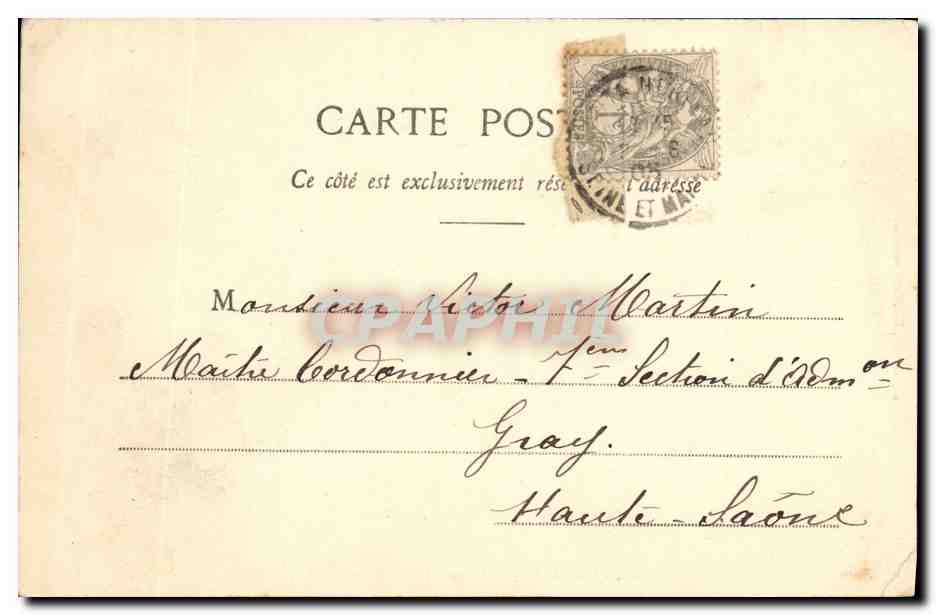 CARTE POST
Ce côté est exclusivement rése l'adresse
POSTES
1
SEINE ET MAR
Monsieur Victor Martin
CPAPHIL
Maître Cordonnier - 7ème Section d'Admon
Gray.
Haute-Saône